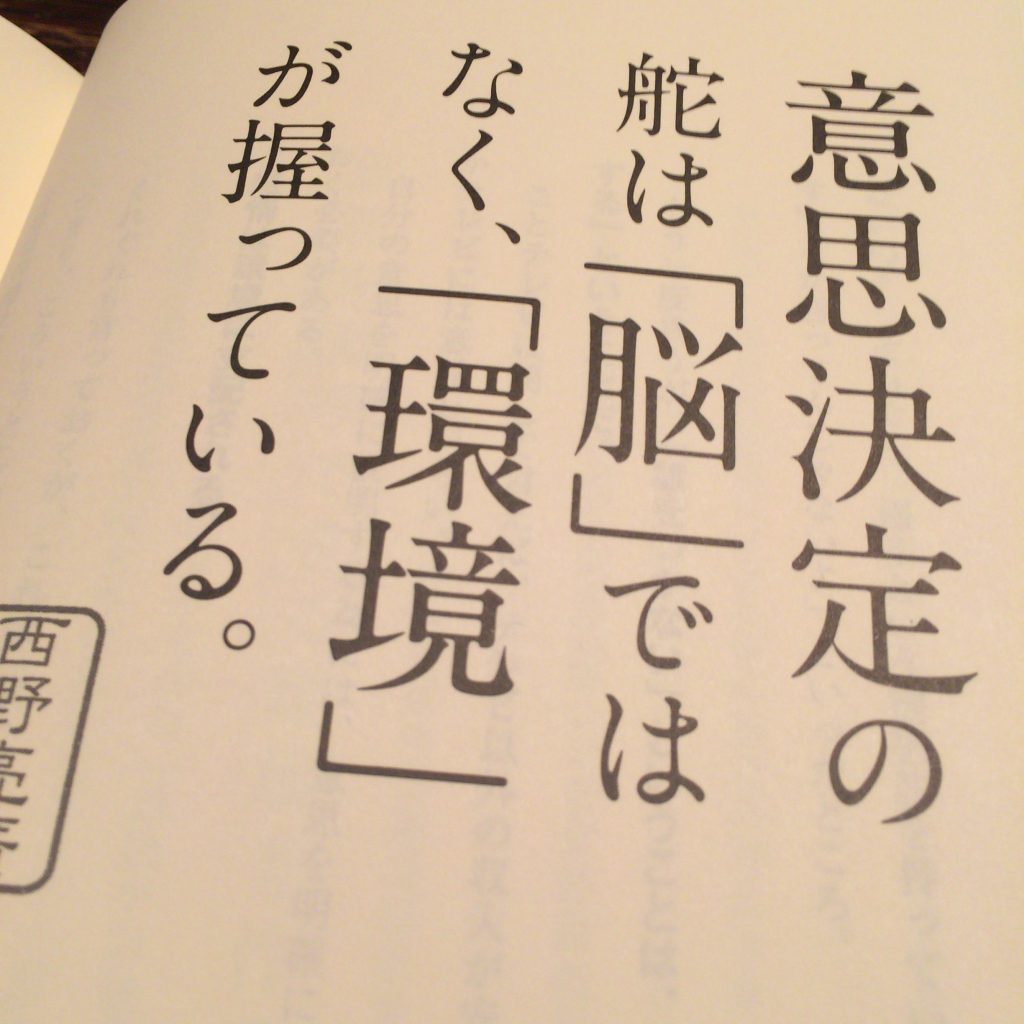 意思決定の
舵は「脳」では
なく、「環境」
が握っている。
西野亮